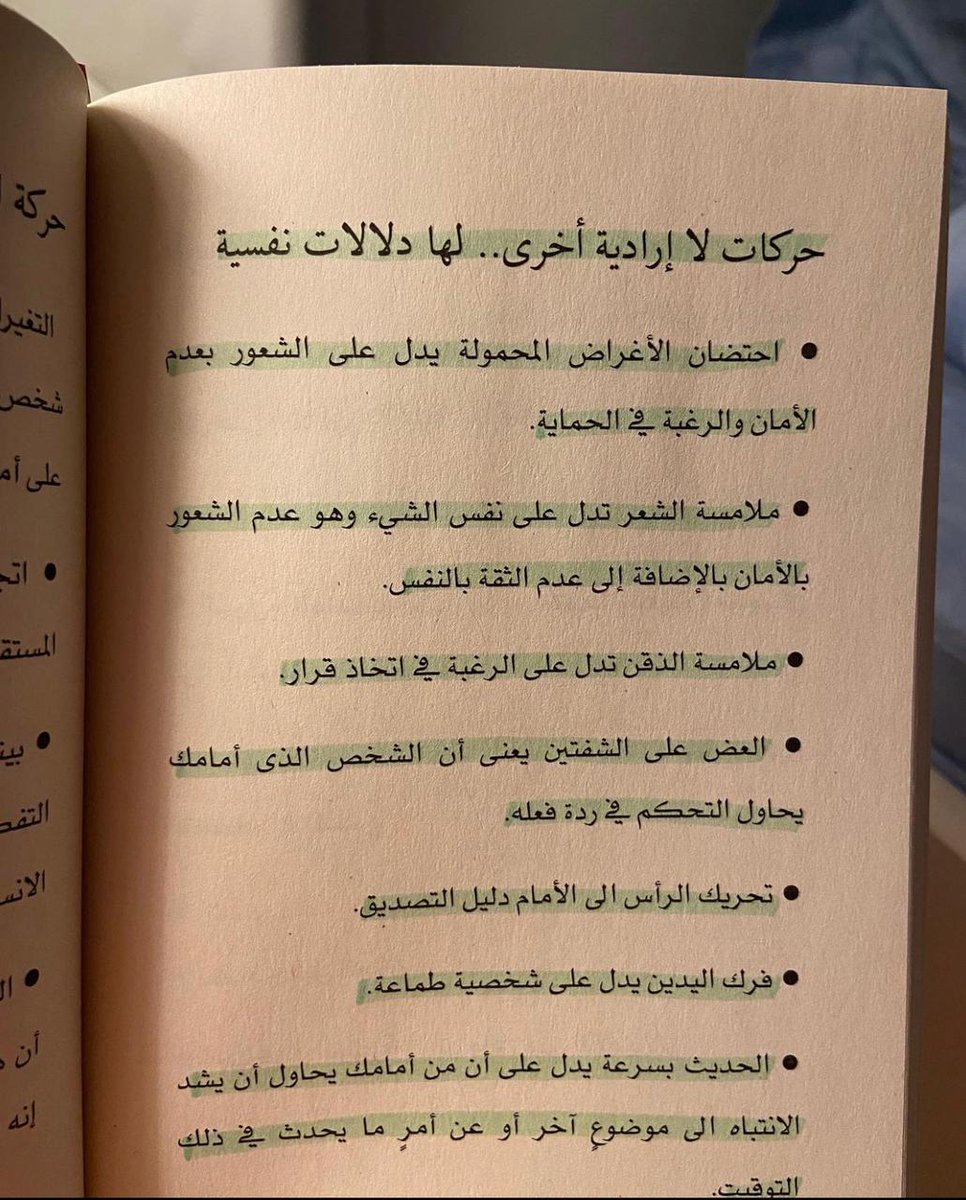 حركات لا إرادية أخرى.. لها دلالات نفسية
● احتضان الأغراض المحمولة يدل على الشعور بعدم
الأمان والرغبة في الحماية.
● ملامسة الشعر تدل على نفس الشيء وهو عدم الشعور
بالأمان بالإضافة إلى عدم الثقة بالنفس.
● ملامسة الذقن تدل على الرغبة في اتخاذ قرار.
● العض على الشفتين يعنى أن الشخص الذى أمامك
يحاول التحكم في ردة فعله.
● تحريك الرأس الى الأمام دليل التصديق.
● فرك اليدين يدل على شخصية طماعة.
● الحديث بسرعة يدل على أن من أمامك يحاول أن يشد
الانتباه الى موضوعٍ آخر أو عن أمرٍ ما يحدث في ذلك
التوقيت.
حركة
شخص
إنه